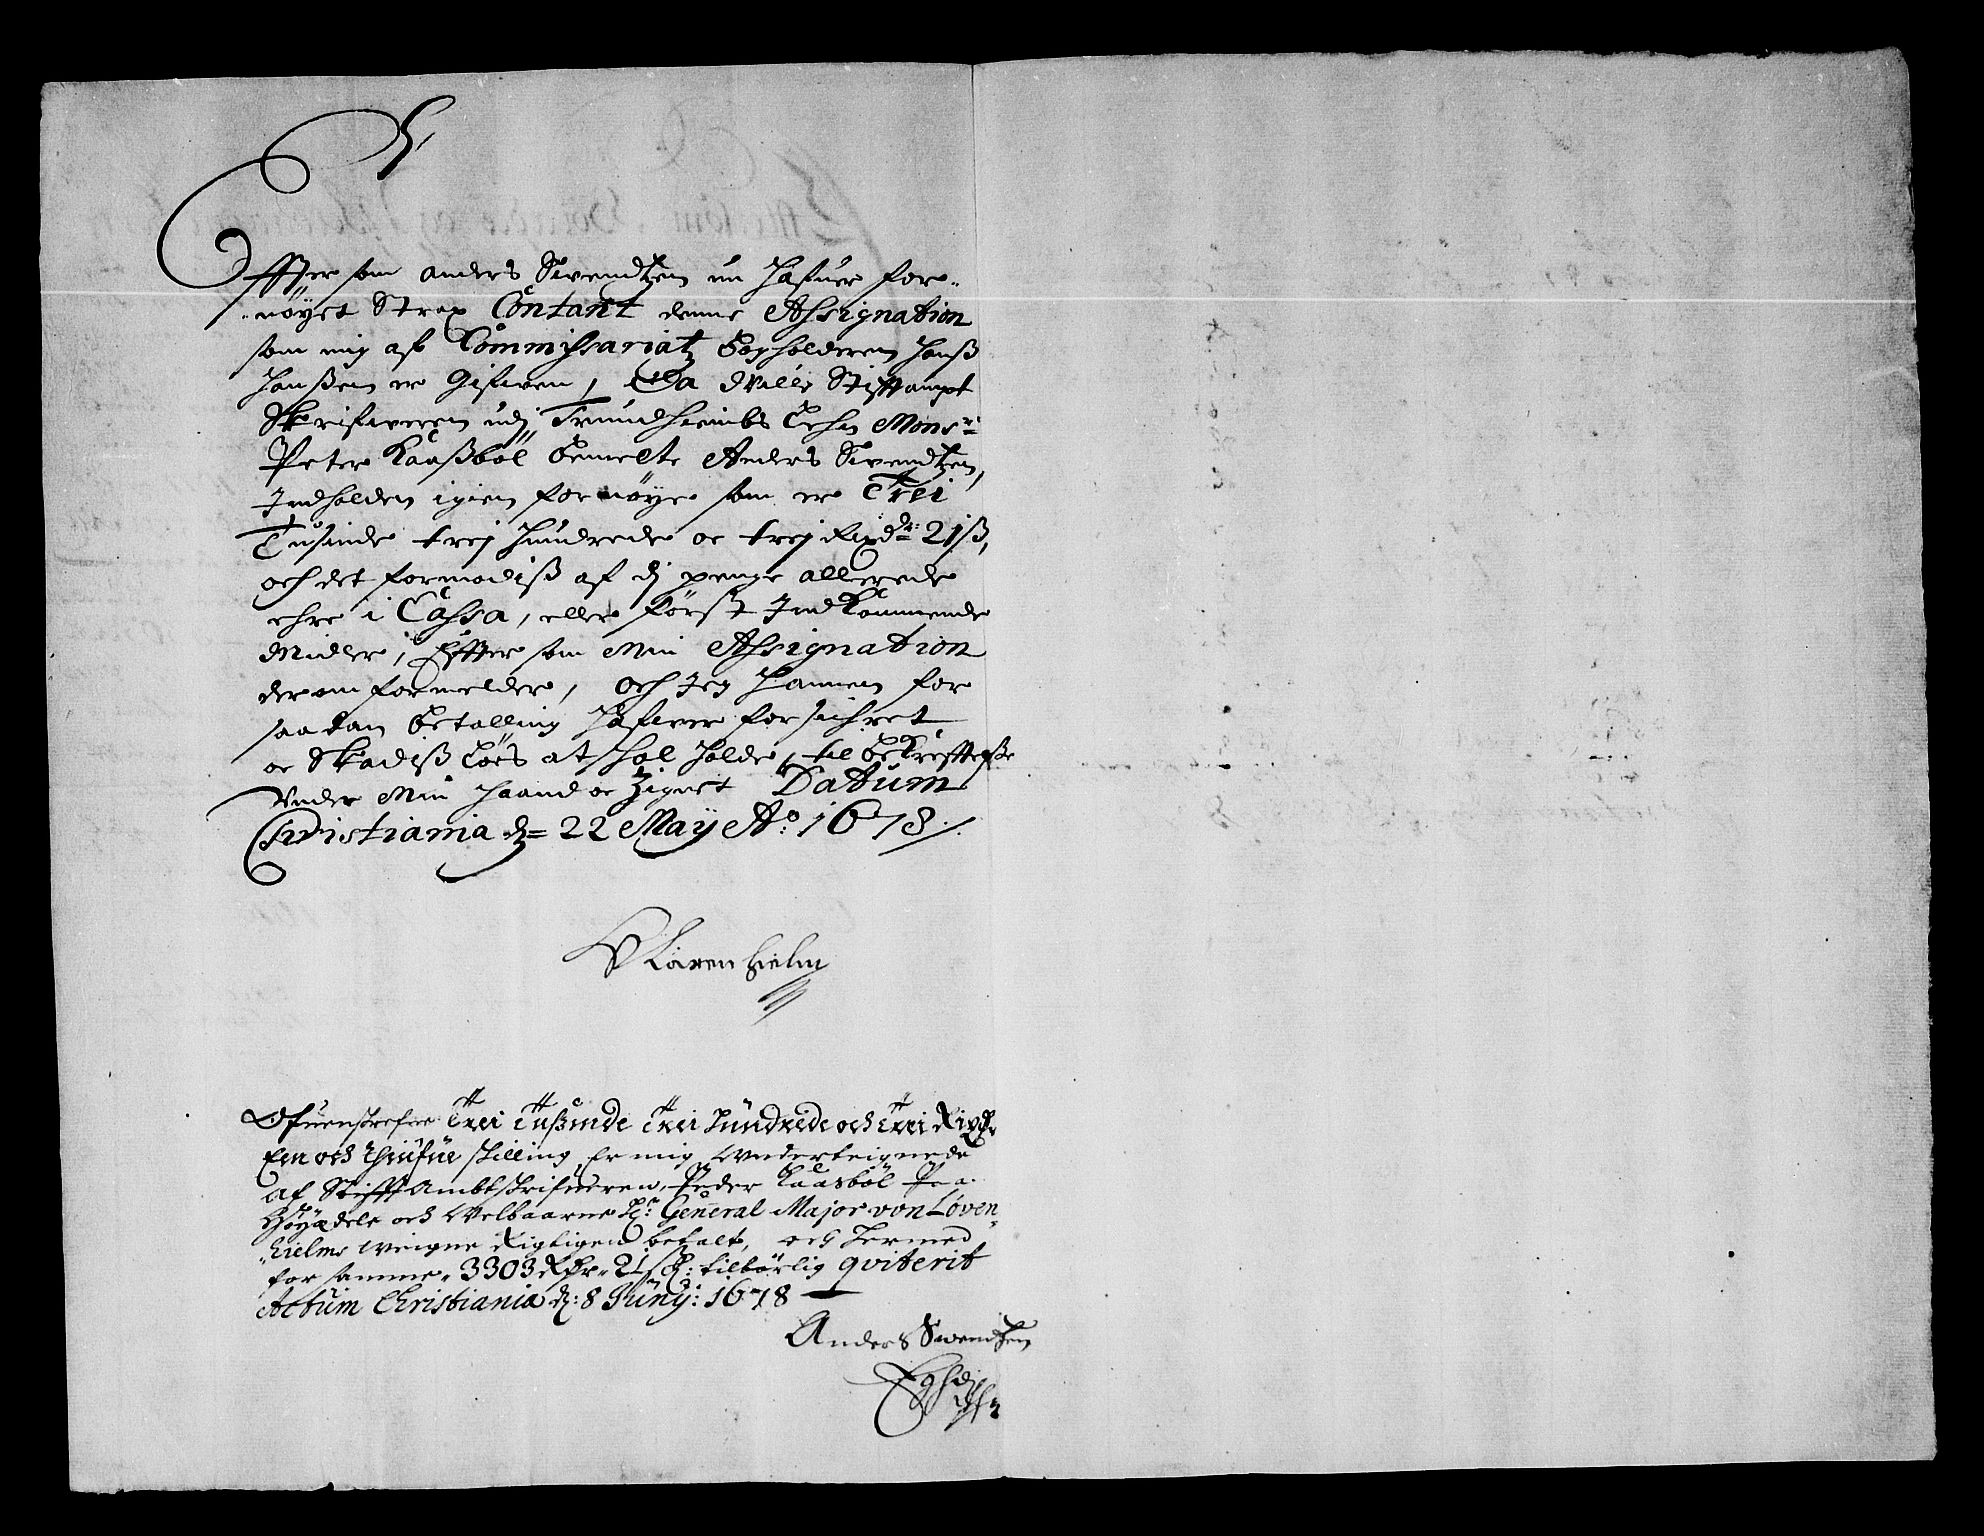 Effter som Anders Swendtzen nu hafuer for-
nöyet Strax Contant denne Assignation
som mig af Commissariatz Bogholderen Hanß
Hanßen er gifwen, Da ville Stifftampt
Skrifweren udj Trundhiembs Lehn Monsr:
Peter Kaaßböl bemelte Anders Swendtzen,
Indholden igien fornöye som er Trei
Tusinde trej Hundrede oc trej Rixdr: 21 ß,
och det formodiß af dj penge allerede
ehre i Cassa, eller först Indkommende
Midler, Effter som Min Assignation
derom formelder, och Jeg hannem for
saadan betalling hafwer forsichret
oc Skadißlöes at skal holde, til bekrefftelße
Under Min haand oc Zignet Datum
Christiania dn 22 May Ao: 1678 /.
Løvenhielm
Ofuenskrefne Trei Tußinde Trei Hundrede och Trei Rixdr
Een och thiufue skilling, Er mig Underteignede
af StifftAmbtskrifueren, Peder Kaasböl Paa
Höyædele och Welbaarne Hr: General Major von Løven-
hielms weigne Rigtigen betalt, och hermed
for samme 3303 Rdr. 21 sk: tilbørlig qviterit
Actum Christiania d: 8 Junij: 1678
Anders Swendtzen
Eghd